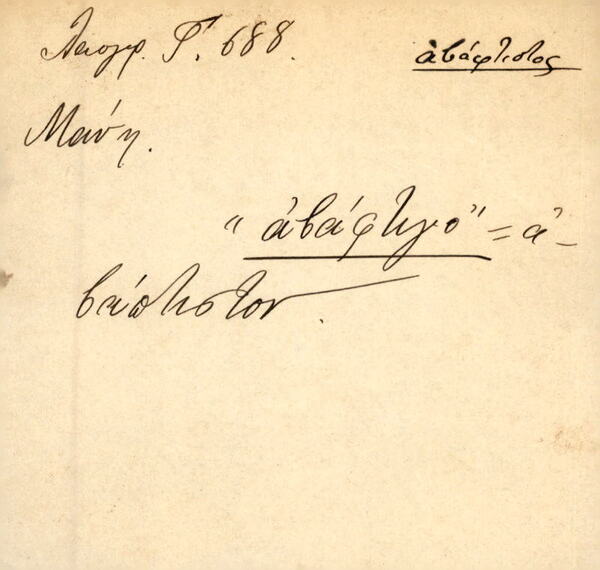 Λαογρ. Γ'. 688. ἀβάφτιστος
Μάνη.
"ἀβάφτιγο" = ἀ-
βάπτιστον.